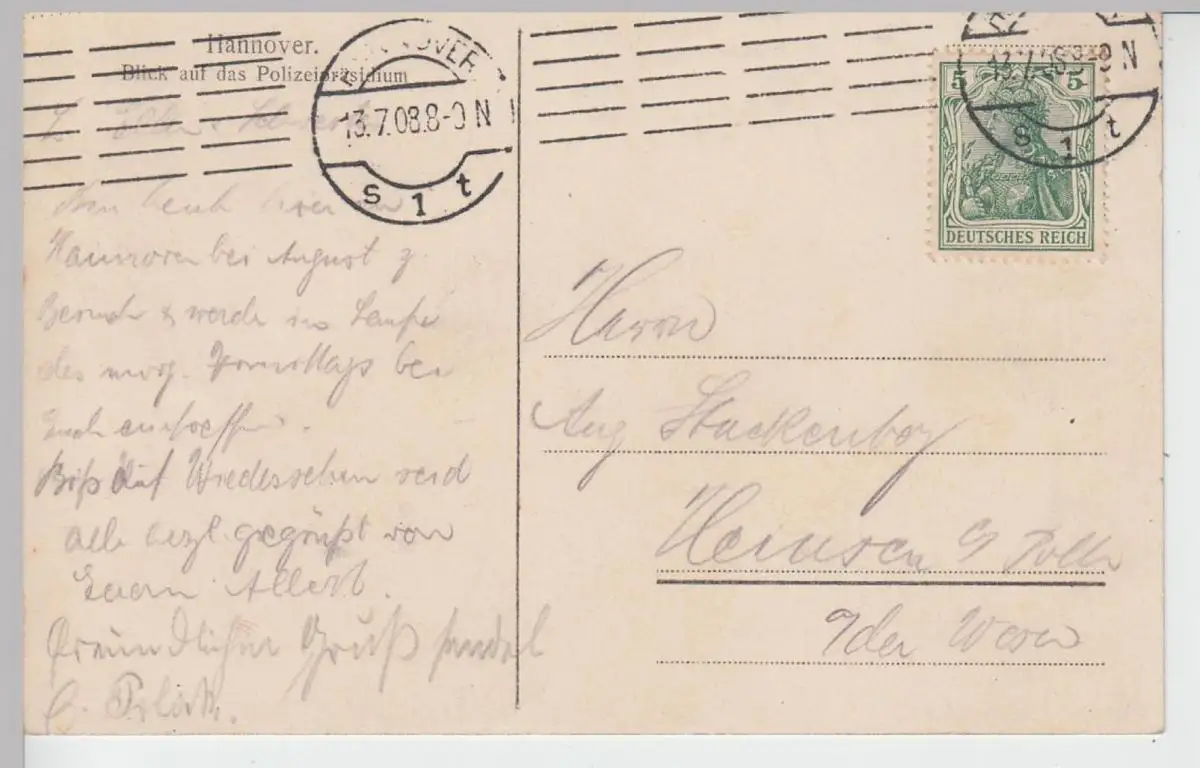 Hannover.
Blick auf das Polizeipräsidium
HANNOVER
13.7.08.8-9 N
S 1 t
13.7.08.8-9 N
S 1 t
5 5
DEUTSCHES REICH
L. Eltern
Bin heute hier in
Hannover bei August z.
Besuch & werde im Laufe
des morg. Vormittags bei
Euch eintreffen.
Biß auf Wiedersehen seid
alle herzl. gegrüßt von
Euern Albert.
Freundlichen Gruß sendet
Herrn
Aug Stackenboy
Hemsen b/ Polle
a/der Weser